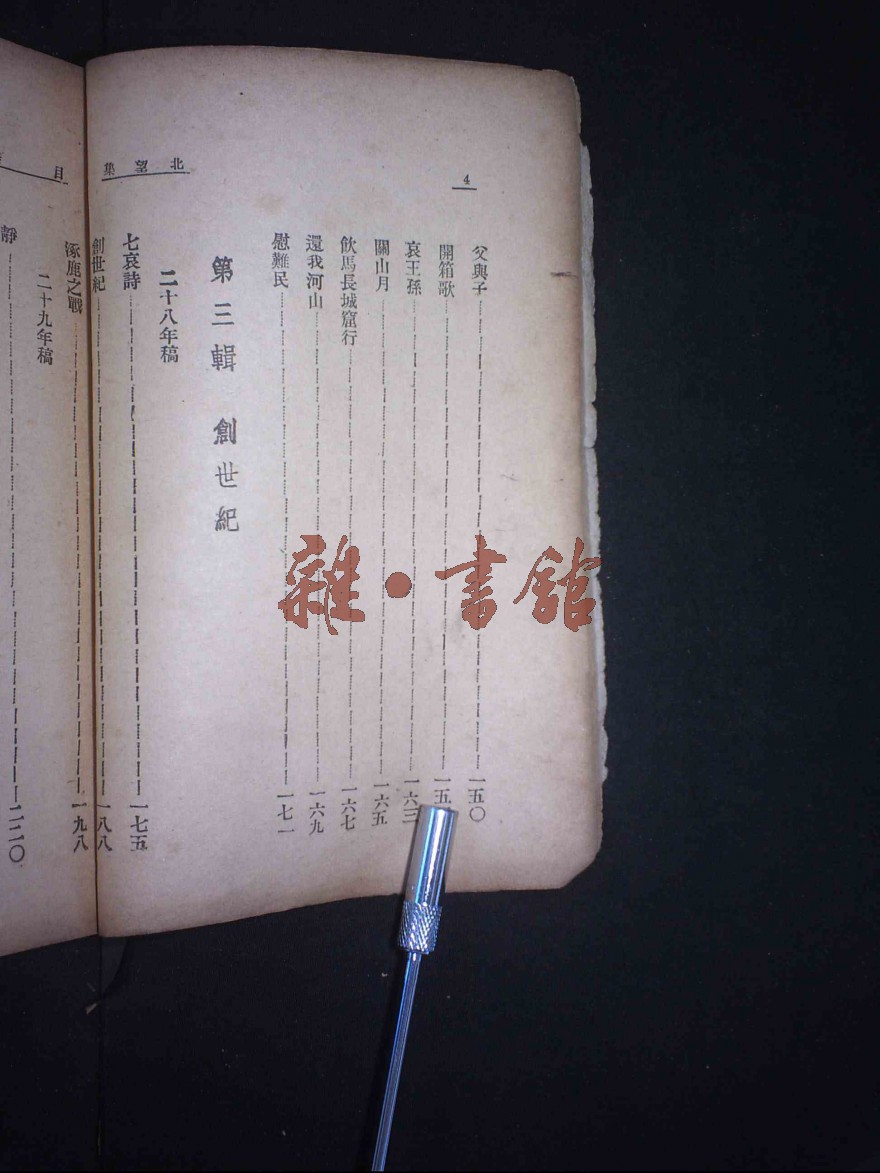 4
北望集
父與子 一五〇
開箱歌 一五
哀王孫 一六三
關山月 一六五
飲馬長城窟行 一六七
還我河山 一六九
慰難民 一七一
第三輯 創世紀
二十八年稿
七哀詩 一七五
創世紀 一八八
涿鹿之戰 一九八
二十九年稿
靜 二二〇
目
雜·書館